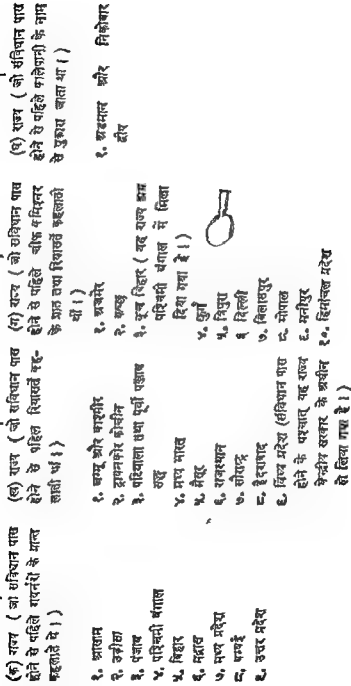 (क) राज्य ( जो संविधान पास
होने से पहिले गवर्नरों के प्रान्त
कहलाते थे । )
१. आसाम
२. उड़ीसा
३. पंजाब
४. पश्चिमी बंगाल
५. बिहार
६. मद्रास
७. मध्य प्रदेश
८. बम्बई
९. उत्तर प्रदेश
(ख) राज्य ( जो संविधान पास
होने से पहिले रियासतें कह-
लाती थीं । )
१. जम्मू और काश्मीर
२. ट्रावनकोर कोचीन
३. पटियाला तथा पूर्वी पंजाब
४. मध्य भारत
५. मैसूर
६. राजस्थान
७. सौराष्ट्र
८. हैदराबाद
९. विंध्य प्रदेश (संविधान पास
होने के पश्चात् यह राज्य
केन्द्रीय सरकार के अधीन
ले लिया गया है । )
(ग) राज्य ( जो संविधान पास
होने से पहिले चीफ कमिश्नर
के प्रान्त तथा रियासतें कहलाती
थीं । )
१. अजमेर
२. कच्छ
३. कूच बिहार ( यह राज्य अब
पश्चिमी बंगाल में मिला
दिया गया है । )
४. कुर्ग
५. त्रिपुरा
६ दिल्ली
७. बिलासपुर
८. भोपाल
९. मनीपुर
१०. हिमांचल प्रदेश
(घ) राज्य ( जो संविधान पास
होने से पहिले कालेपानी के नाम
से पुकारा जाता था । )
१. अडमान और निकोबार
द्वीप